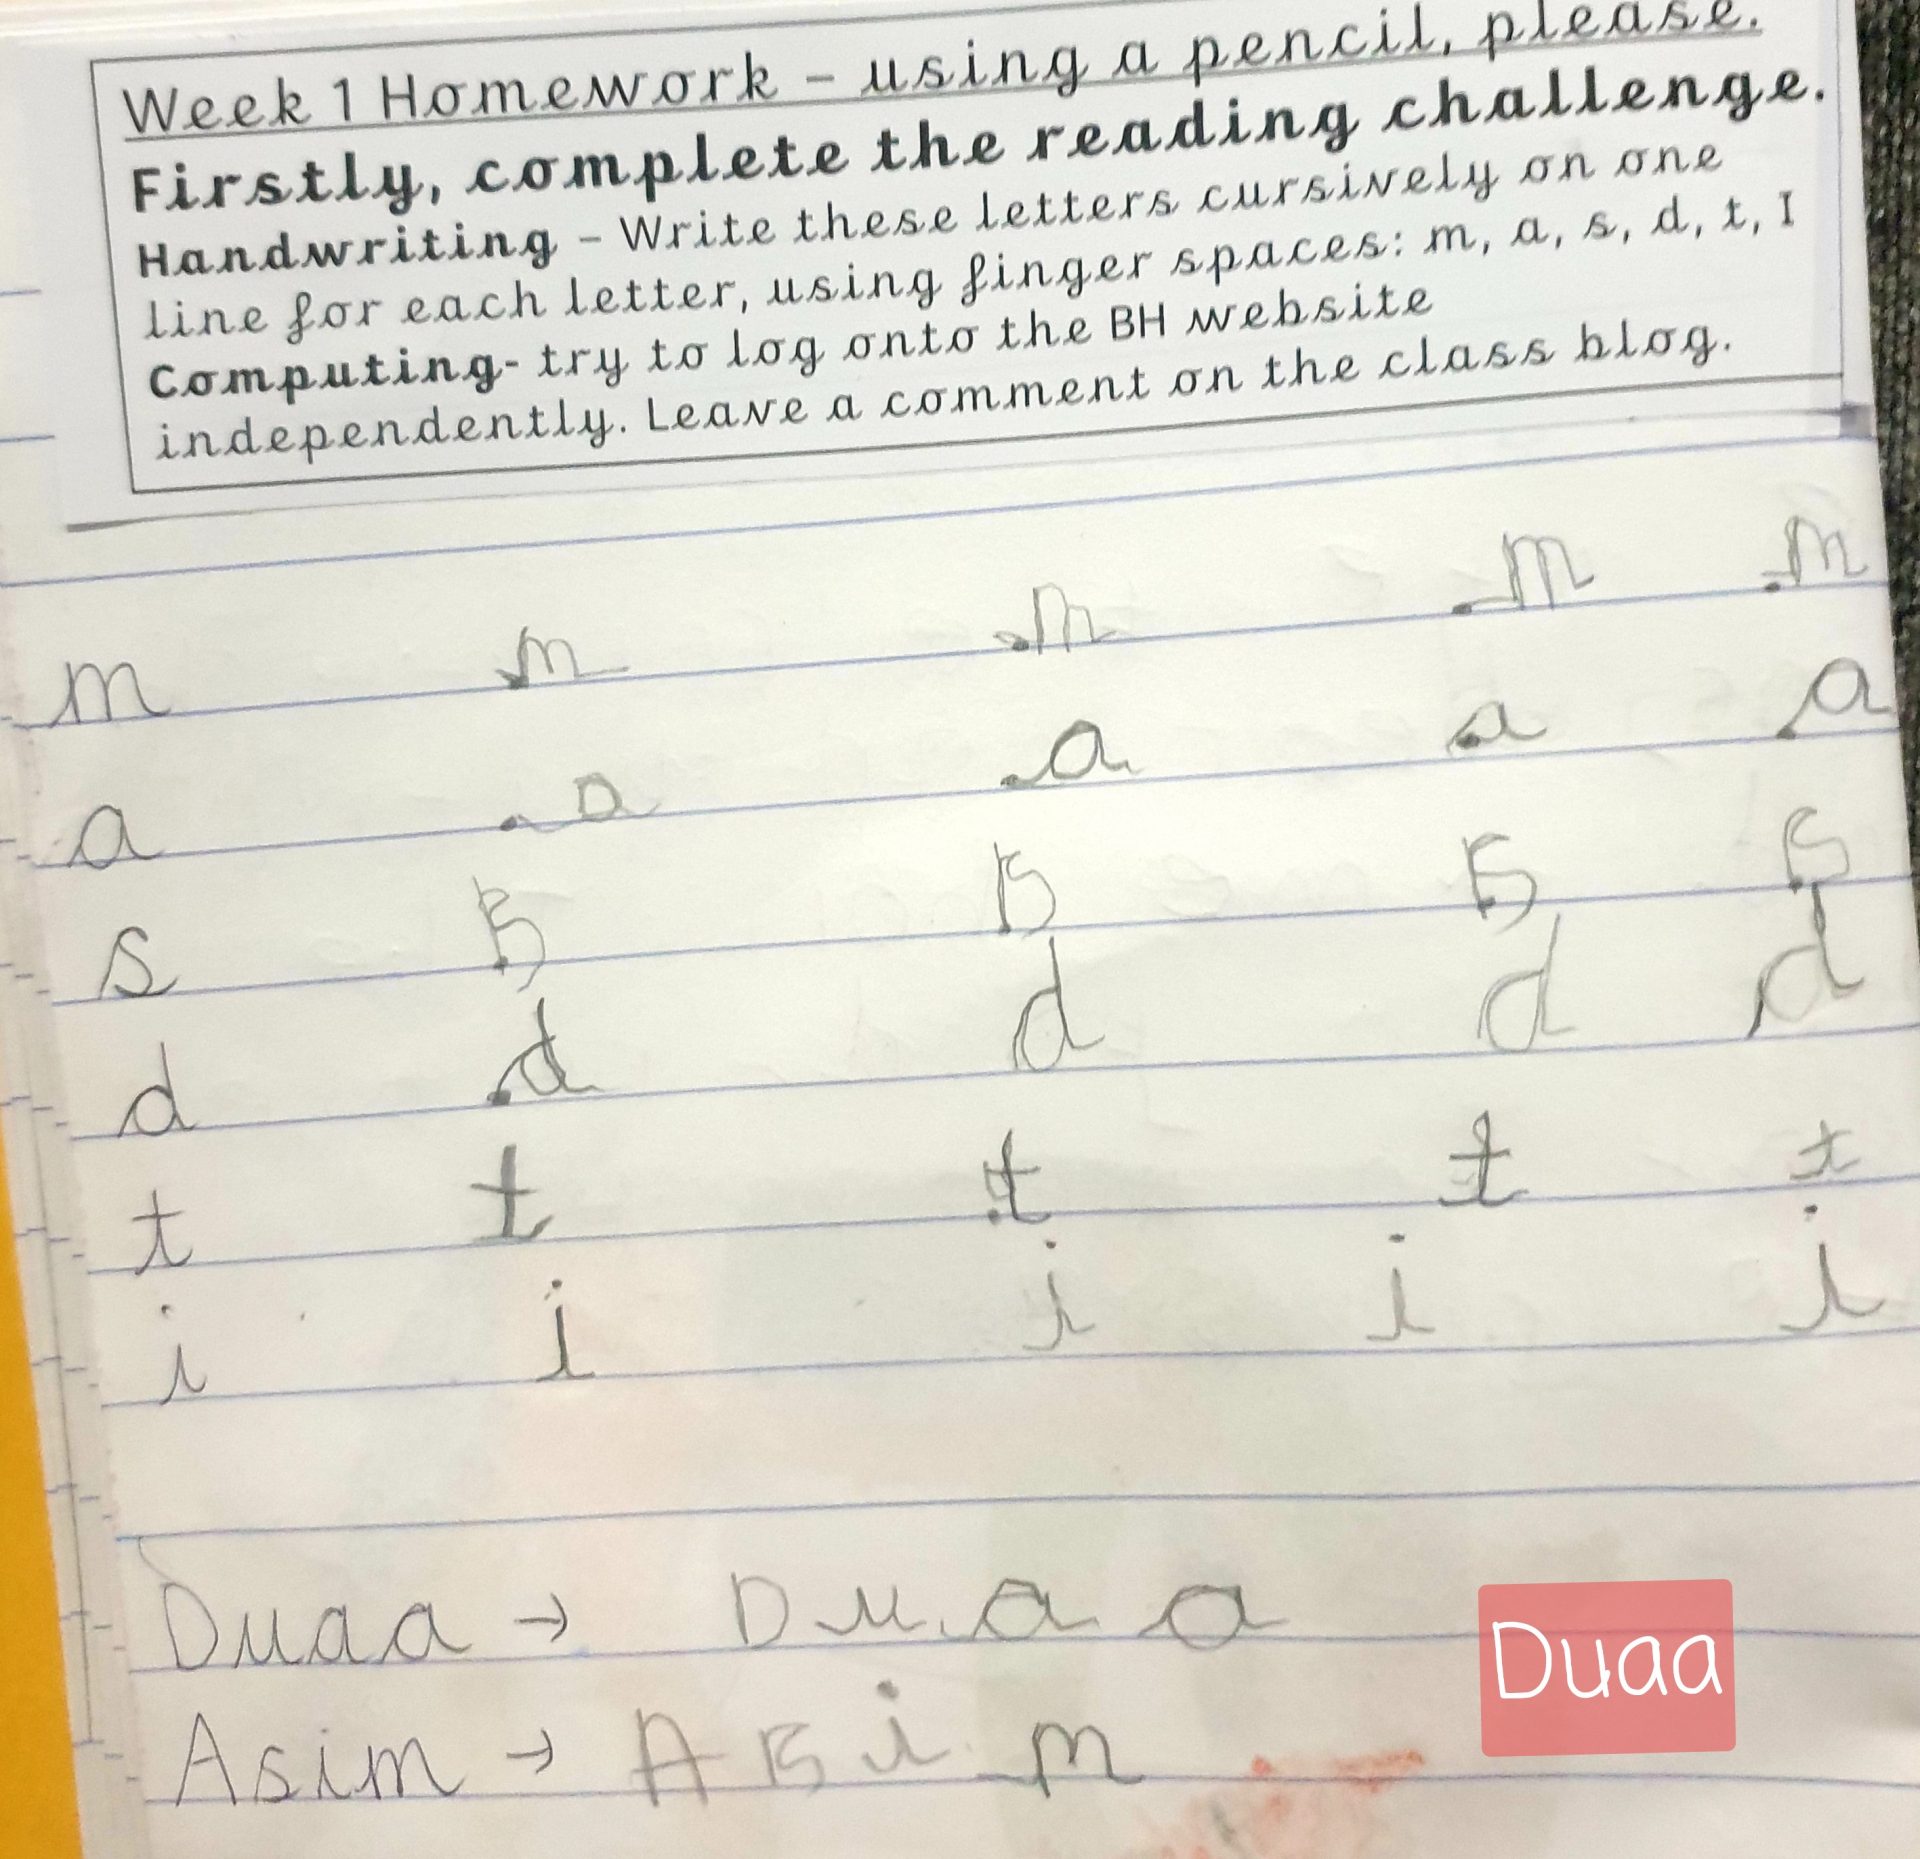 Week 1 Homework – using a pencil, please.
Firstly, complete the reading challenge.
Handwriting – Write these letters cursively on one
line for each letter, using finger spaces: m, a, s, d, t, I
Computing- try to log onto the BH website
independently. Leave a comment on the class blog.
m m m m m
a a a a a
s s s s s
d d d d d
t t t t t
i i i i i
Duaa → D u a a
Duaa
Asim → A s i m